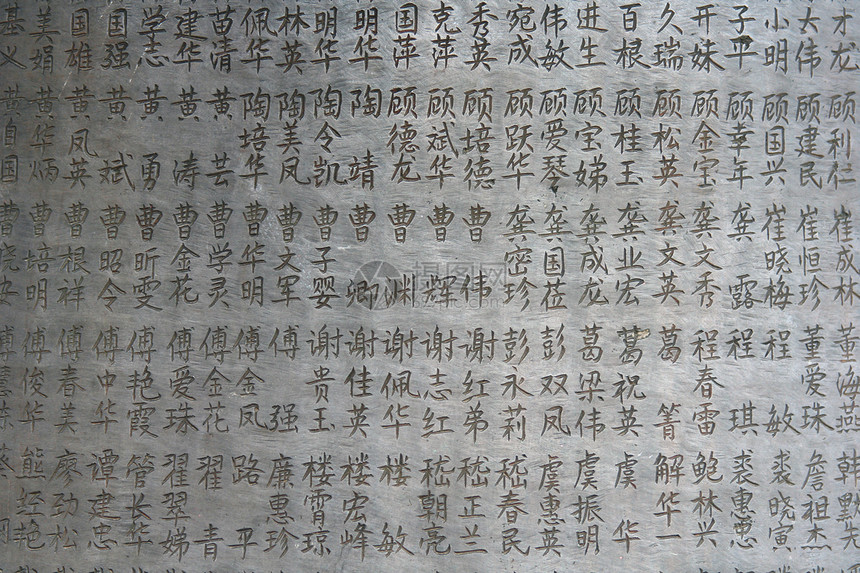 才龙
大伟
小明
子平
开妹
久瑞
百根
进生
伟敏
宛成
秀英
克萍
国萍
明华
明华
林英
佩华
苗清
建华
学志
国强
国雄
美娟
基义
顾利仁
顾建民
顾国兴
顾幸年
顾金宝
顾松英
顾桂玉
顾宝娣
顾爱琴
顾跃华
顾培德
顾斌华
顾德龙
陶靖
陶令凯
陶美凤
陶培华
黄芸
黄涛
黄勇
黄斌
黄凤英
黄华炳
黄自国
崔成林
崔恒珍
崔晓梅
龚露
龚文秀
龚文英
龚业宏
龚成龙
龚国莅
龚密珍
曹伟
曹辉
曹渊
曹卿
曹子婴
曹文军
曹华明
曹学灵
曹金花
曹昕雯
曹昭令
曹根祥
曹培明
曹晓安
董海燕
董爱珠
程敏
程琪
程春雷
葛箐
葛祝英
葛梁伟
彭双凤
彭永莉
谢红弟
谢志红
谢佩华
谢佳英
谢贵玉
傅强
傅金凤
傅金花
傅爱珠
傅艳霞
傅中华
傅春美
傅俊华
詹祖杰
裘晓寅
鲍林兴
解华一
虞华
虞振明
虞惠英
嵇春民
嵇正兰
嵇朝亮
楼敏
楼宏峰
楼霄琼
廉惠珍
路平
翟青
翟翠娣
管长华
谭建忠
廖劲松
熊经艳